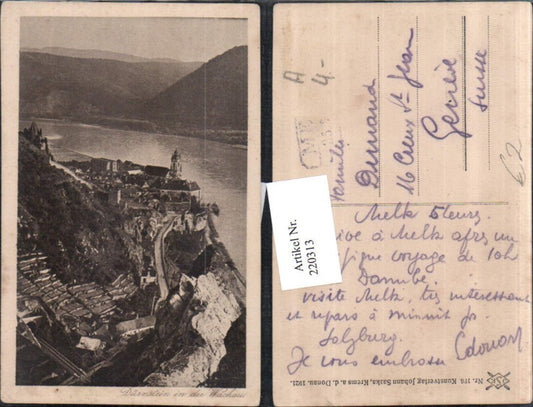 Dürnstein in der Wachau
A
4.-
Famille
Durand
16 Creux St Jean
Genève
Suisse
62
Artikel Nr.
220313
Melk 5 heures.
à Melk après un
voyage de 10h
Danube.
visite Melk, très interessant
et repars à minuit pr.
Salzburg.
Je vous embrasse Edouard
Nr. 101. Kunstverlag Johann Saska, Krems a. d. Donau. 1921.